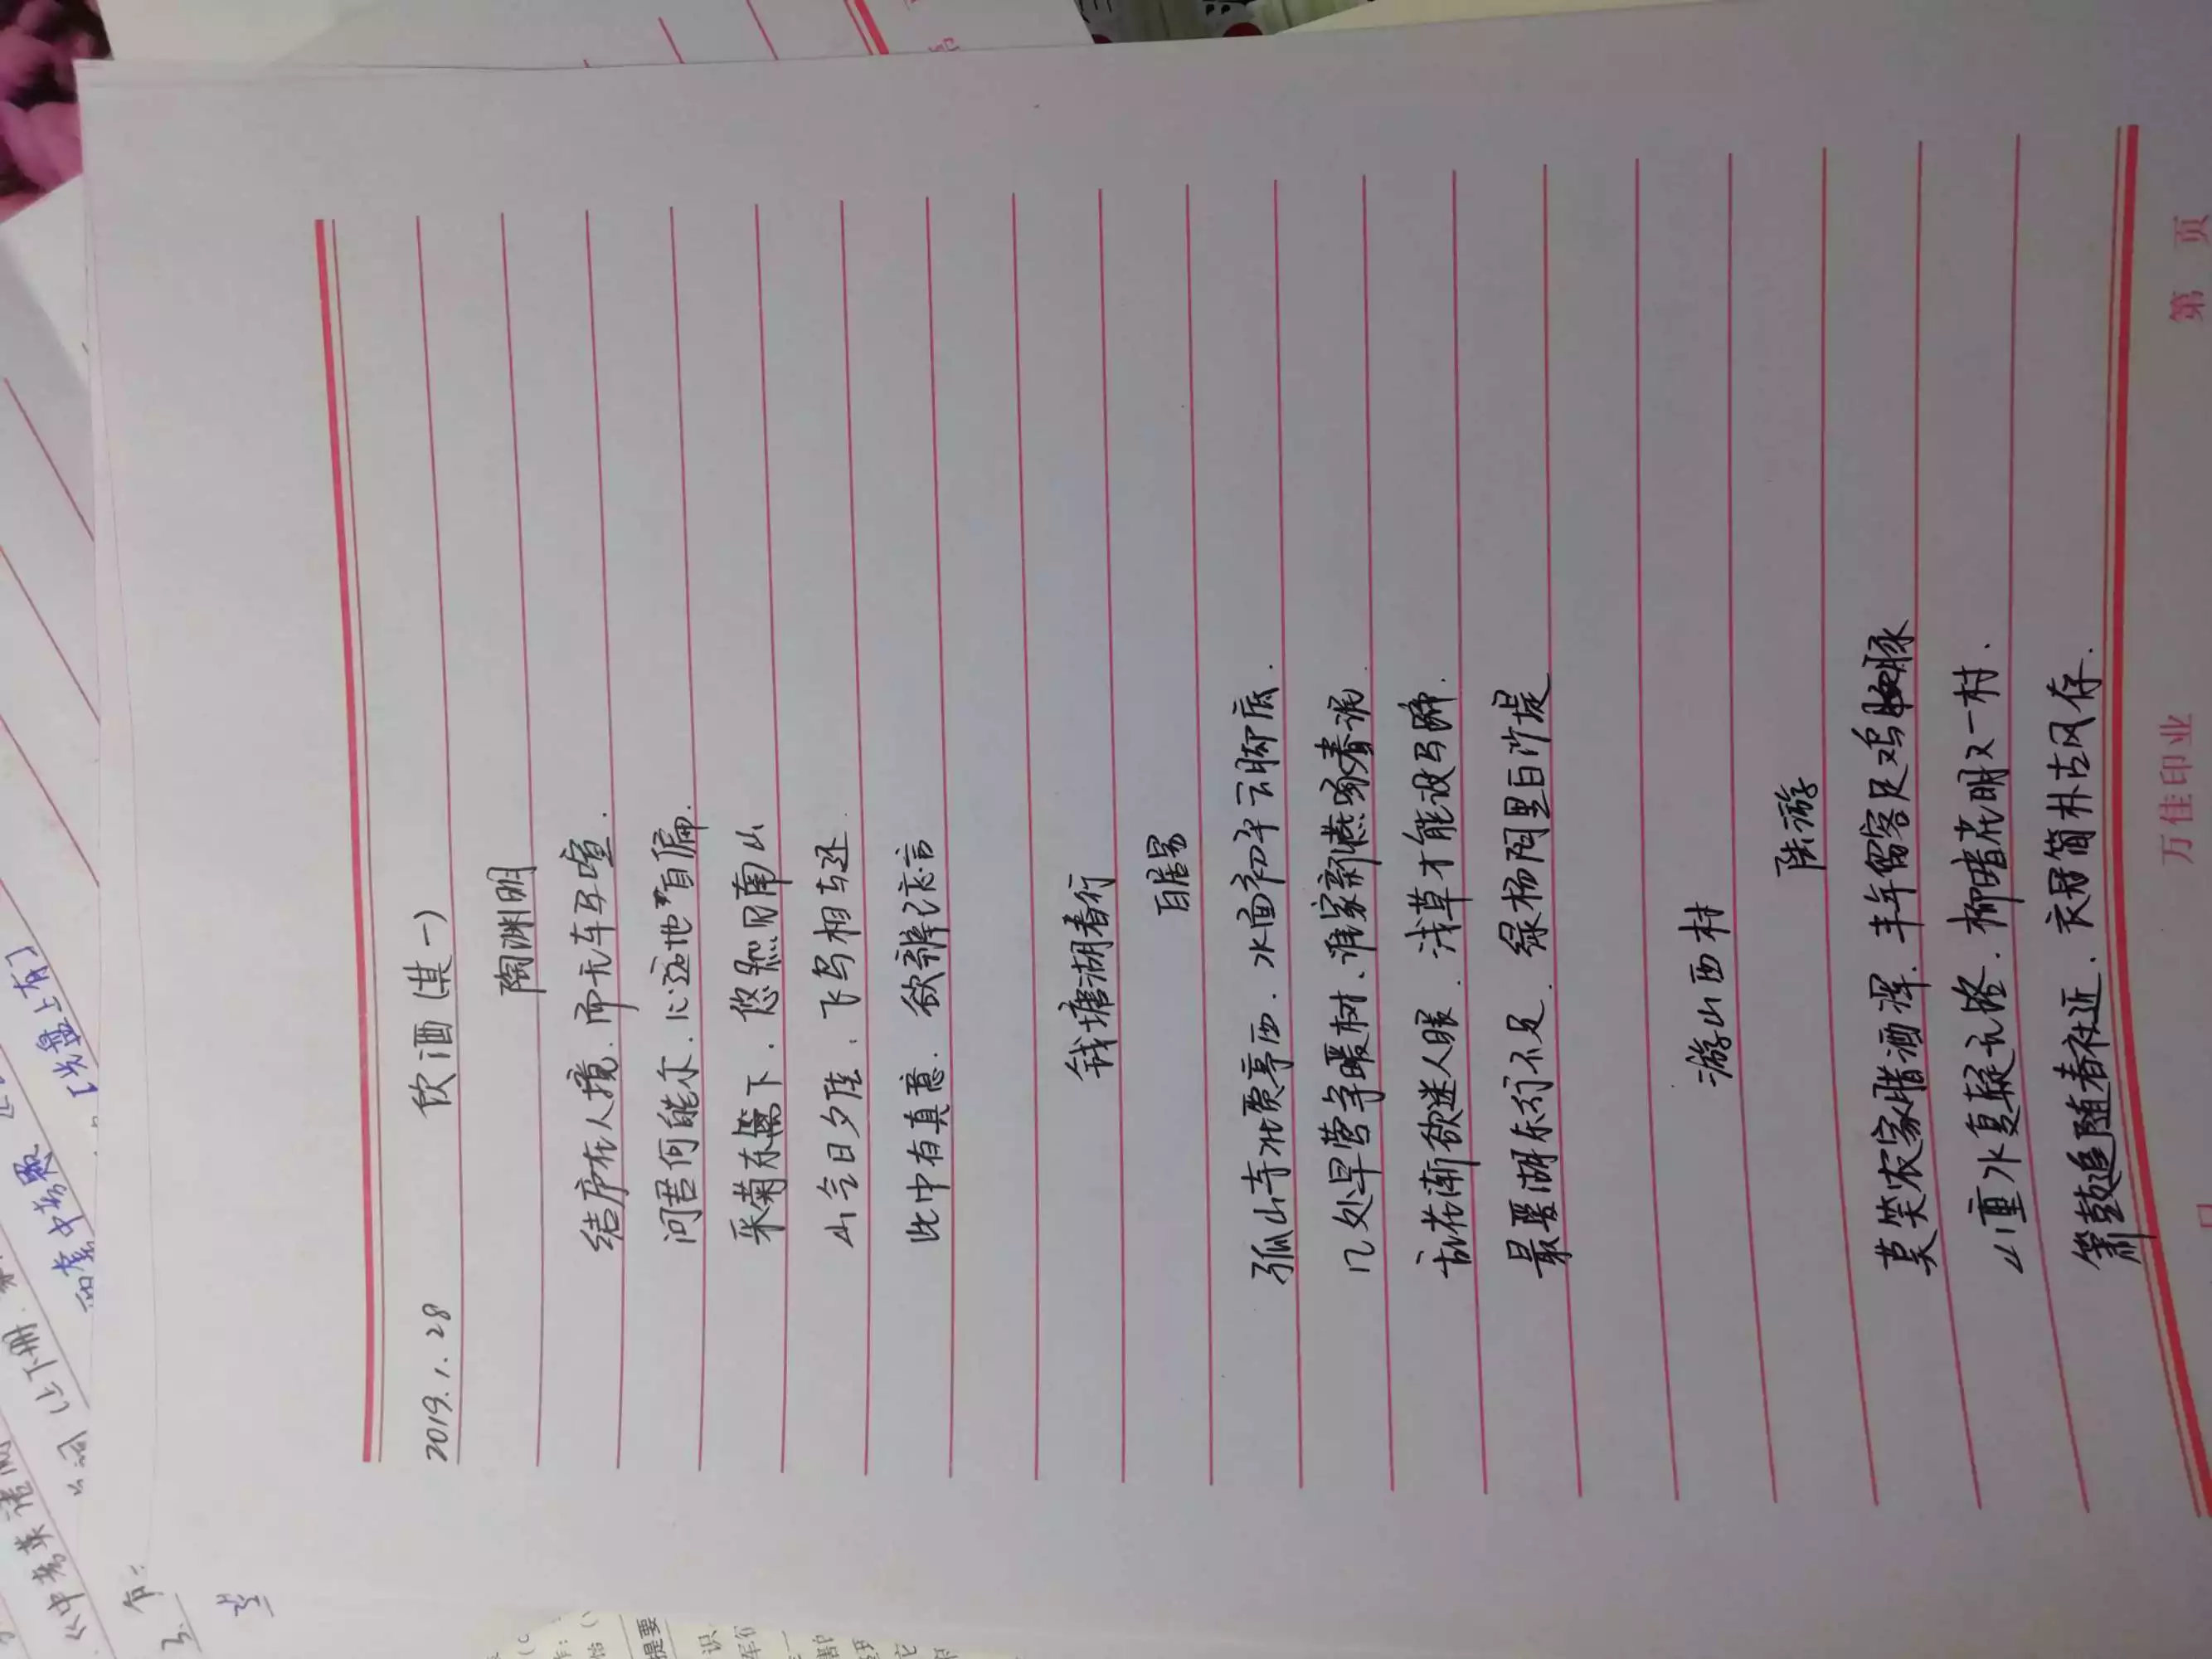 2019.1.28 饮酒(其一)
陶渊明
结庐在人境.而无车马喧.
问君何能尔.心远地自偏.
采菊东篱下.悠然见南山
山气日夕佳.飞鸟相与还.
此中有真意.欲辨已忘言
钱塘湖春行
白居易
孤山寺北贾亭西.水面初平云脚底.
几处早莺争暖树.谁家新燕啄春泥.
乱花渐欲迷人眼.浅草才能没马蹄.
最爱湖东行不足.绿杨阴里白沙堤
游山西村
陆游
莫笑农家腊酒浑.丰年留客足鸡豚
山重水复疑无路.柳暗花明又一村.
箫鼓追随春社近.衣冠简朴古风存.
万佳印业
第 页
[光盘上有]